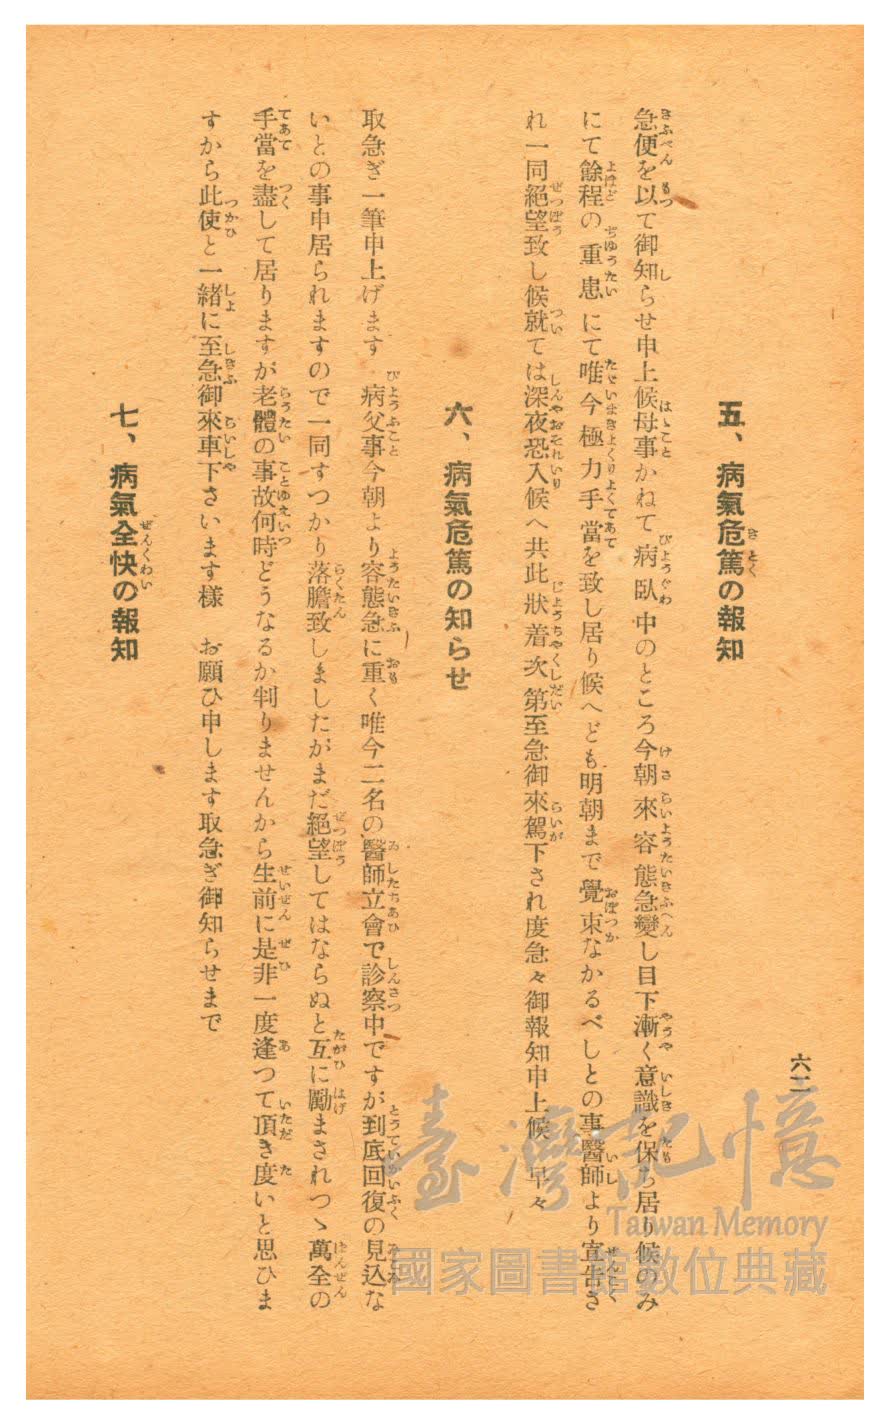 六二
五、病氣危篤の報知
急便を以て御知らせ申上候母事かねて病臥中のところ今朝來容態急變し目下漸く意識を保ち居り候のみ
にて餘程の重患にて唯今極力手當を致し居り候へども明朝まで覺束なかるべしとの事醫師より宣告さ
れ一同絕望致し候就ては深夜恐入候へ共此狀着次第至急御來駕下され度急々御報知申上候 早々
六、病氣危篤の知らせ
取急ぎ一筆申上げます 病父事今朝より容態急に重く唯今二名の醫師立會で診察中ですが到底回復の見込な
いとの事申居られますので一同すつかり落膽致しましたがまだ絕望してはならぬと互に勵まされつゝ萬全の
手當を盡して居りますが老體の事故何時どうなるか判りませんから生前に是非一度逢つて頂き度いと思ひま
すから此使と一緒に至急御來車下さいます樣 お願ひ申します取急ぎ御知らせまで
七、病氣全快の報知
臺灣記憶
Taiwan Memory
國家圖書館數位典藏